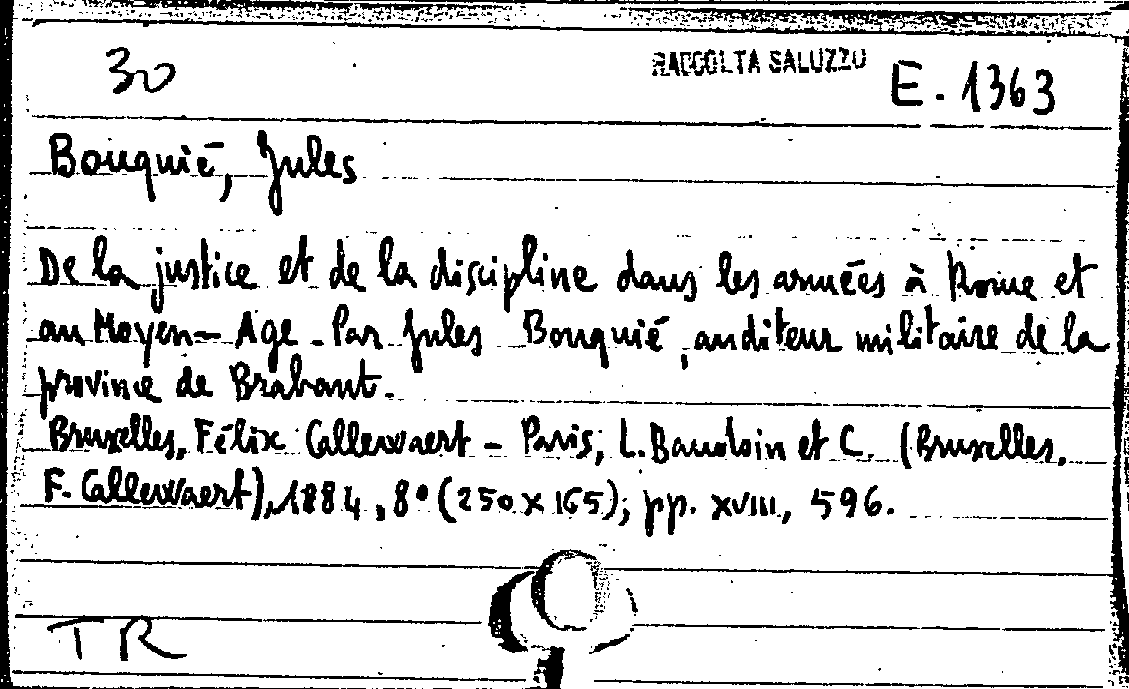 30 RACCOLTA SALUZZO E. 1363
Bouquié, Jules
De la justice et de la discipline dans les armées à Rome et
au Moyen-Age - Par Jules Bouquié, auditeur militaire de la
province de Brabant.
Bruxelles, Félix Callewaert - Paris, L. Baudoin et C. (Bruxelles,
F. Callewaert), 1884, 8° (250 x 165); pp. XVIII, 596.
TR